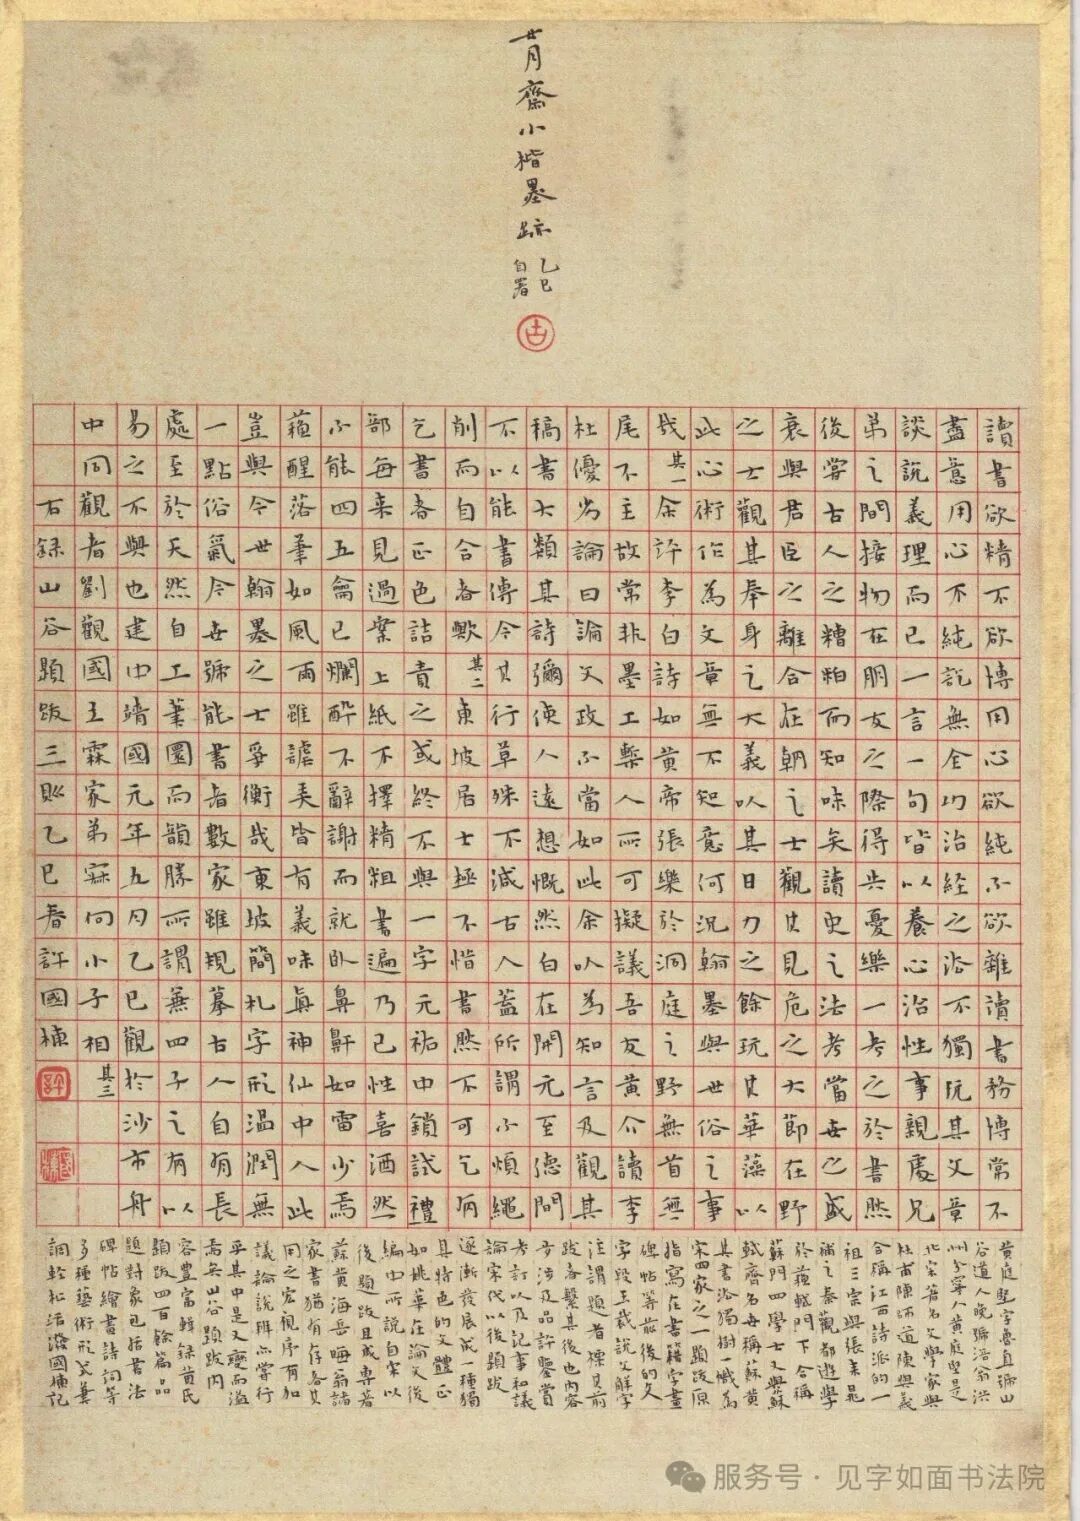 廿月齋小楷墨跡
乙巳
自署
讀書欲精不欲博用心欲純不欲雜讀書務博常不
盡意用心不純訖無全功治經之法不獨玩其文章
談說義理而已一言一句皆以養心治性事親處兄
弟之間接物在朋友之際得失憂樂一考之於書然
後嘗古人之糟粕而知味矣讀史之法考當世之盛
衰與君臣之離合在朝之士觀其見危之大節在野
之士觀其奉身之大義以其日力之餘玩其華藻以
此心術作為文章無不如意何況翰墨與世俗之事
哉其一余評李白詩如黃帝張樂於洞庭之野無首無
尾不主故常非墨工槧人所可擬議吾友黃介讀李
杜優劣論曰論文政不當如此余以為知言及觀其
稿書大類其詩彌使人遠想慨然白在開元至德間
不以能書傳今其行草殊不減古人蓋所謂不煩繩
削而自合者歟其二東坡居士極不惜書然不可乞有
乞書者正色詰責之或終不與一字元祐中鎖試禮
部每来見過案上紙不擇精粗書遍乃已性喜酒然
不能四五龠已爛醉不辭謝而就臥鼻鼾如雷少焉
蘓醒落筆如風雨雖謔弄皆有義味真神仙中人此
豈與今世翰墨之士爭衡哉東坡簡札字形溫潤無
一點俗氣今世號能書者數家雖規摹古人自有長
處至於天然自工筆圓而韻勝所謂兼四子之有以
易之不與也建中靖國元年五月乙巳觀於沙市舟
中同觀者劉觀國王霖家弟寐向小子相其三
右録山谷題跋三則乙巳春許國棟
黃庭堅字魯直號山
谷道人晚號涪翁洪
州分寧人黃庭堅是
北宋著名文學家與
杜甫陳師道陳與義
合稱江西詩派的一
祖三宗與張耒晁
補之秦觀都遊學
於蘇軾門下合稱
蘇門四學士又與蘇
軾齊名世稱蘇黃
其書法獨樹一幟為
宋四家之一題跋原
指寫在書籍字畫
碑帖等前後的文
字段玉裁說文解字
注謂題者標其前
跋者繫其後也內容
多涉及品評鑒賞
考訂以及記事和議
論宋代以後題跋
逐漸發展成一種獨
具特色的文體正
如姚華在論文後
編中所說自宋以
後題跋且成專著
蘇黃海岳晦翁諸
家書猶有存者其
用之宏視序有加
議論說辨亦嘗行
乎其中是又變而溢
焉矣山谷題跋內
容豐富輯錄黃氏
題跋四百餘篇品
題對象包括書法
碑帖繪書詩詞等
多種藝術形式筆
調輕松活潑國棟記
服务号·见字如面书法院